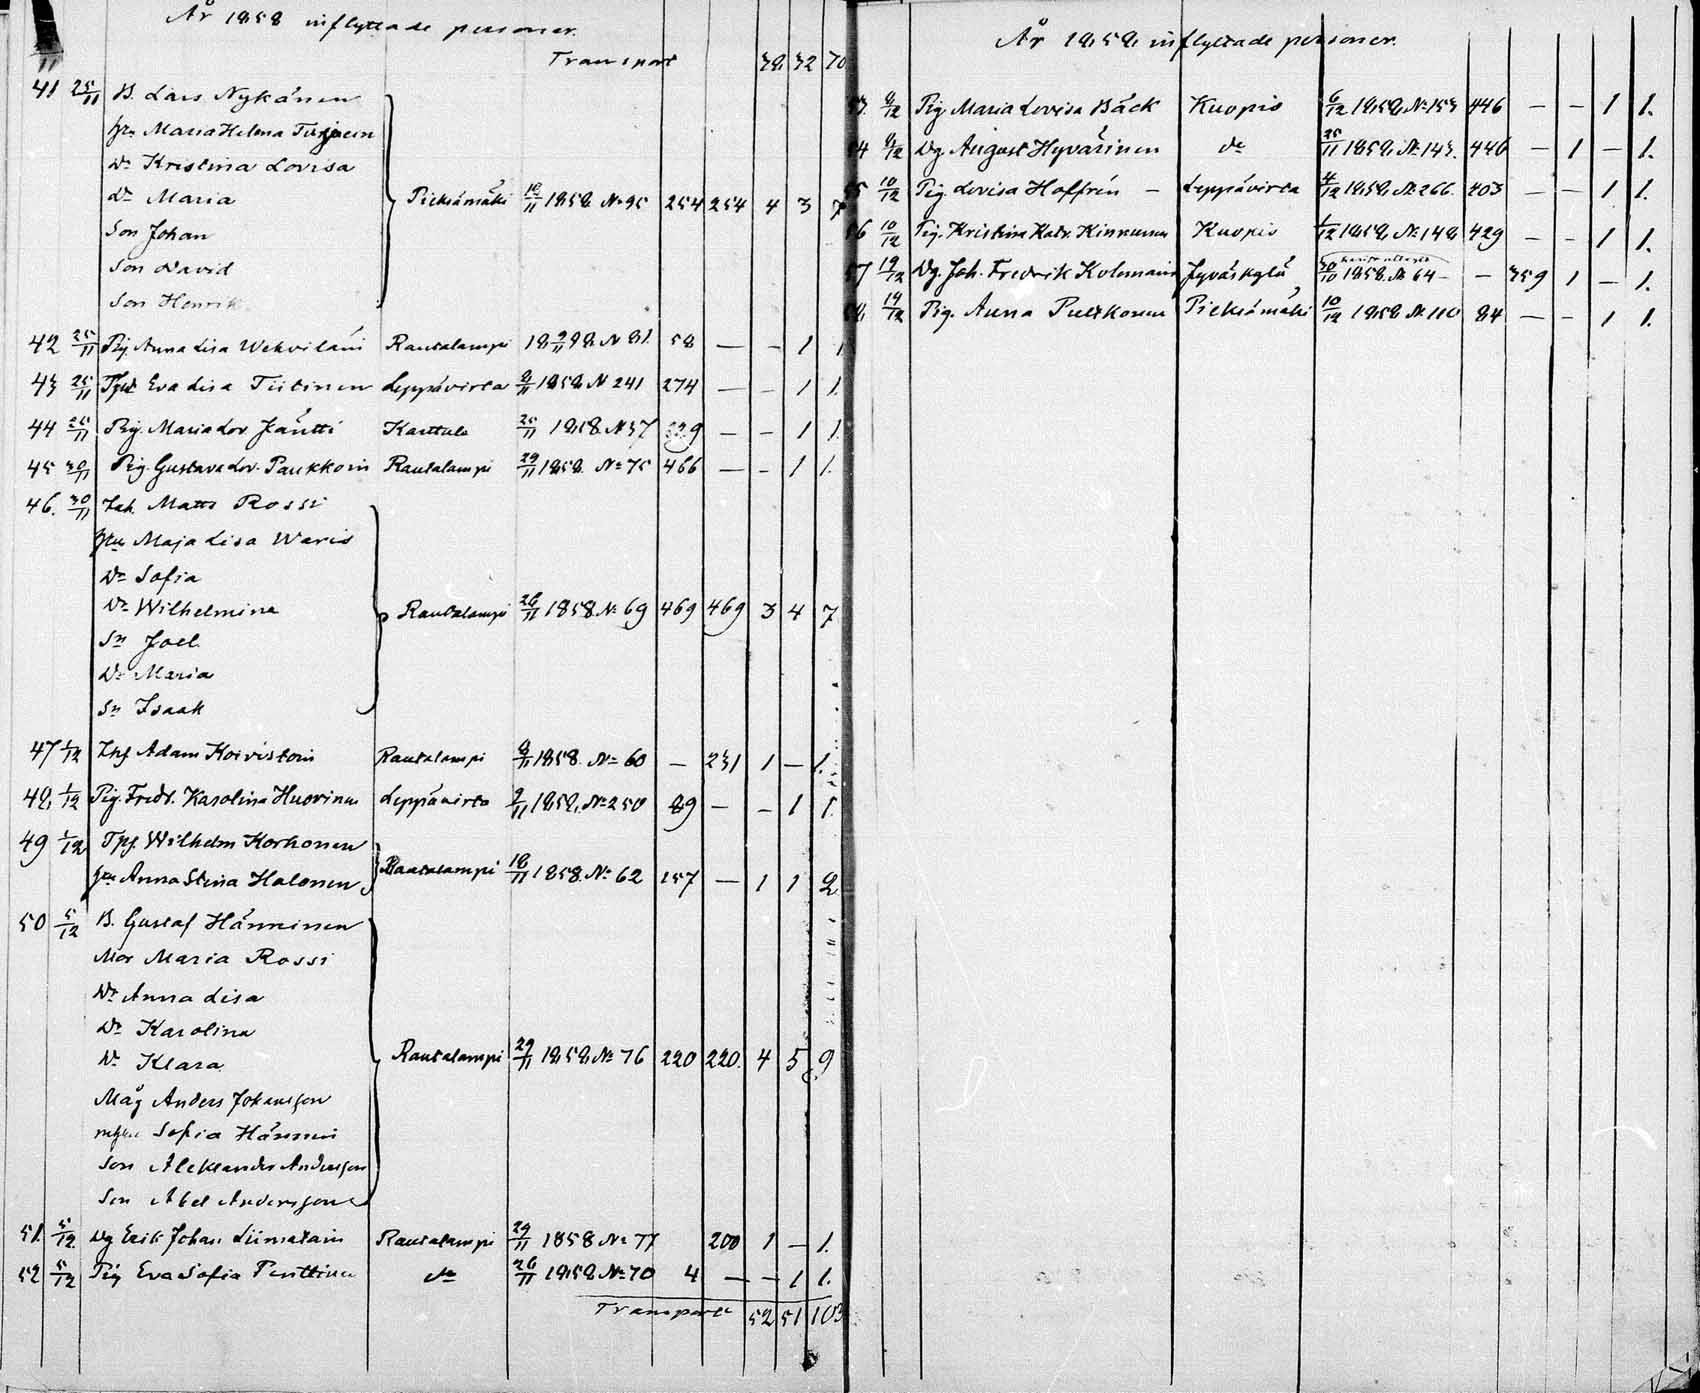 År 1858 inflyttade personer.
Transport 38 32 70
41 25/11 B. Lars Nykänen
Hu Maria Helena
Dr Kristina Lovisa
Dr Maria Pieksämäki 10/11 1858 No 95 254 254 4 3 7
Son Johan
Son David
Son Henrik
42 25/11 Pig Anna Lisa Rautalampi No 81 58 — – 1 1
43 25/11 Eva Lisa Tiitinen Leppävirta 8/11 1858 N 241 274 — – 1 1.
44 25/11 Pig. Maria Lov. Jäntti Karttula 25/11 1858 N 37 — – 1 1.
45 30/11 Pig. Gustava Lov. Paukkoin Rautalampi 29/11 1858. No 75 466 — – 1 1.
46. 30/11 Matts Rossi
Hu Maja Lisa Waris
Dr Sofia
Dr Wilhelmina Rautalampi 26/11 1858 No 69 469 469 3 4 7
Sn Joel
Dr Maria
Sn Isaak
47 1/12 Adam Koivistoin Rautalampi 8/11 1858. No 60 — 231 1 – 1.
48 1/12 Pig. Fredr. Karolina Huovinen Leppävirta 9/11 1858. No 250 89 – – 1 1.
49 1/12 Wilhelm Korhonen
Hu Anna Stina Halonen Rautalampi 18/11 1858. No 62 157 — 1 1 2
50 5/12 B. Gustaf Hänninen
Mor Maria Rossi
Dr Anna Lisa
Dr Karolina
Dr Klara Rautalampi 29/11 1858. No 76 220 220. 4 5 9
Måg Anders Johansson
Sofia Hännin
Son Aleksander Andersson
Son Abel Andersson
51. 5/12 Dg Erik Johan Liimatain Rautalampi 29/11 1858 No 77 200 1 – 1.
52 5/12 Pig Eva Sofia Penttinen do 26/11 1858 No 70 4 — – 1 1.
Transport 52 51 103
År 1858 inflyttade personer.
53. 8/12 Pig Maria Lovisa Bäck Kuopio 6/12 1858. No 153 446 – – 1 1.
54 8/12 Dg August Hyvärinen do 25/11 1858. No 143. 446 – 1 – 1.
55 10/12 Pig. Lovisa Hoffrén – Leppävirta 4/12 1858. No 266. 403 – – 1 1.
56 10/12 Pig. Kristina Katr. Kinnunen Kuopio 1/12 1858. No 148 429 – – 1 1.
57 19/12 Dg. Joh. Fredrik Jyväskylä 30/10 1858. No 64 – – 359 1 – 1.
58. 19/12 Pig. Anna Pulkkonen Pieksämäki 10/12 1858 No 110 84 – – 1 1.